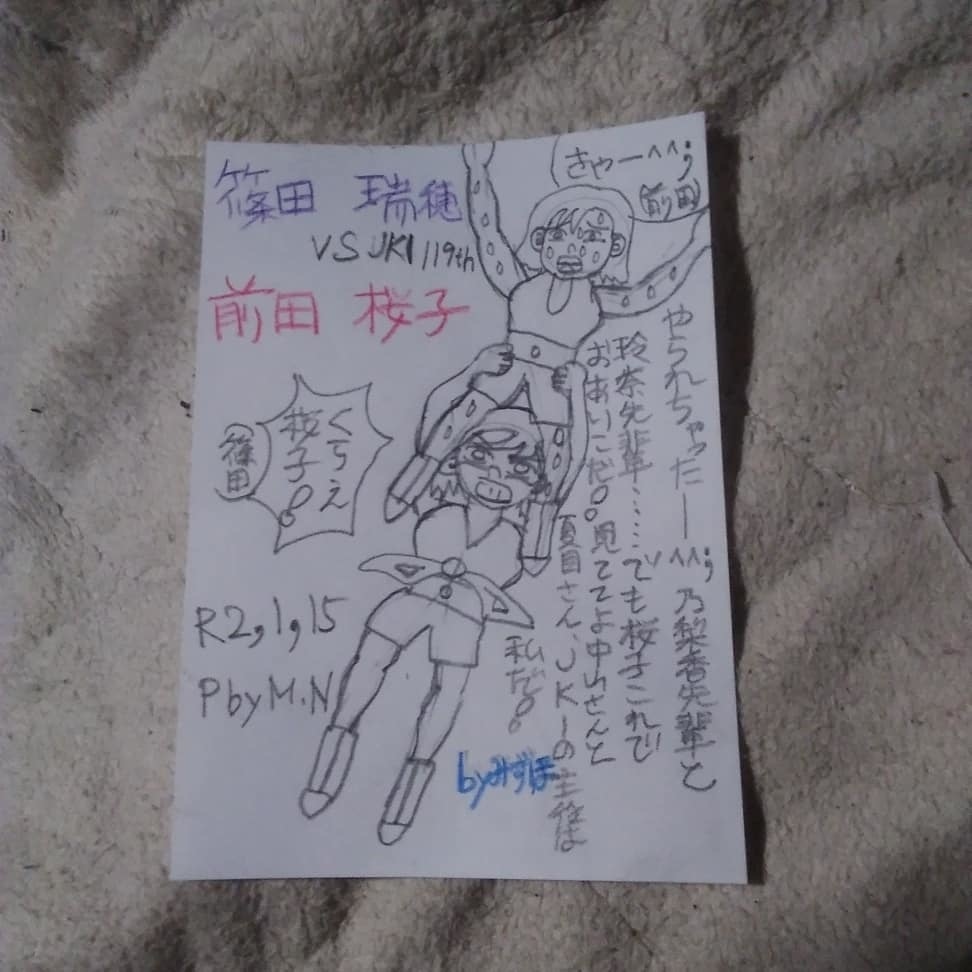 篠田 瑞穂
VS UKI 119th
前田 桜子
きゃー^^;
前田
くらえ
桜子。
篠田
やられちゃったー^^; 乃梨香先輩と
玲奈先輩……でも桜子これで
おあいこだ。見ててよ中山さんと
夏目さん、UKIの主役は
私だ。
byみずほ
R2,1,15
PbyM.N